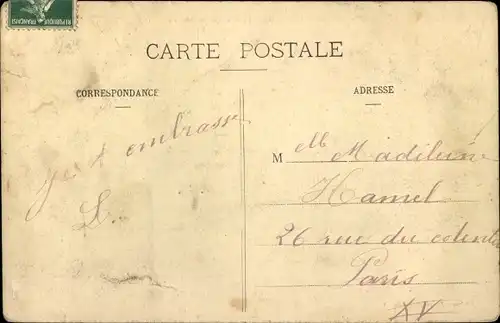 REPUBLIQUE FRANÇAISE
CARTE POSTALE
CORRESPONDANCE
ADRESSE
je t embrasse
L.
Mlle Madeleine
Hamel
26 rue du
Paris
XV